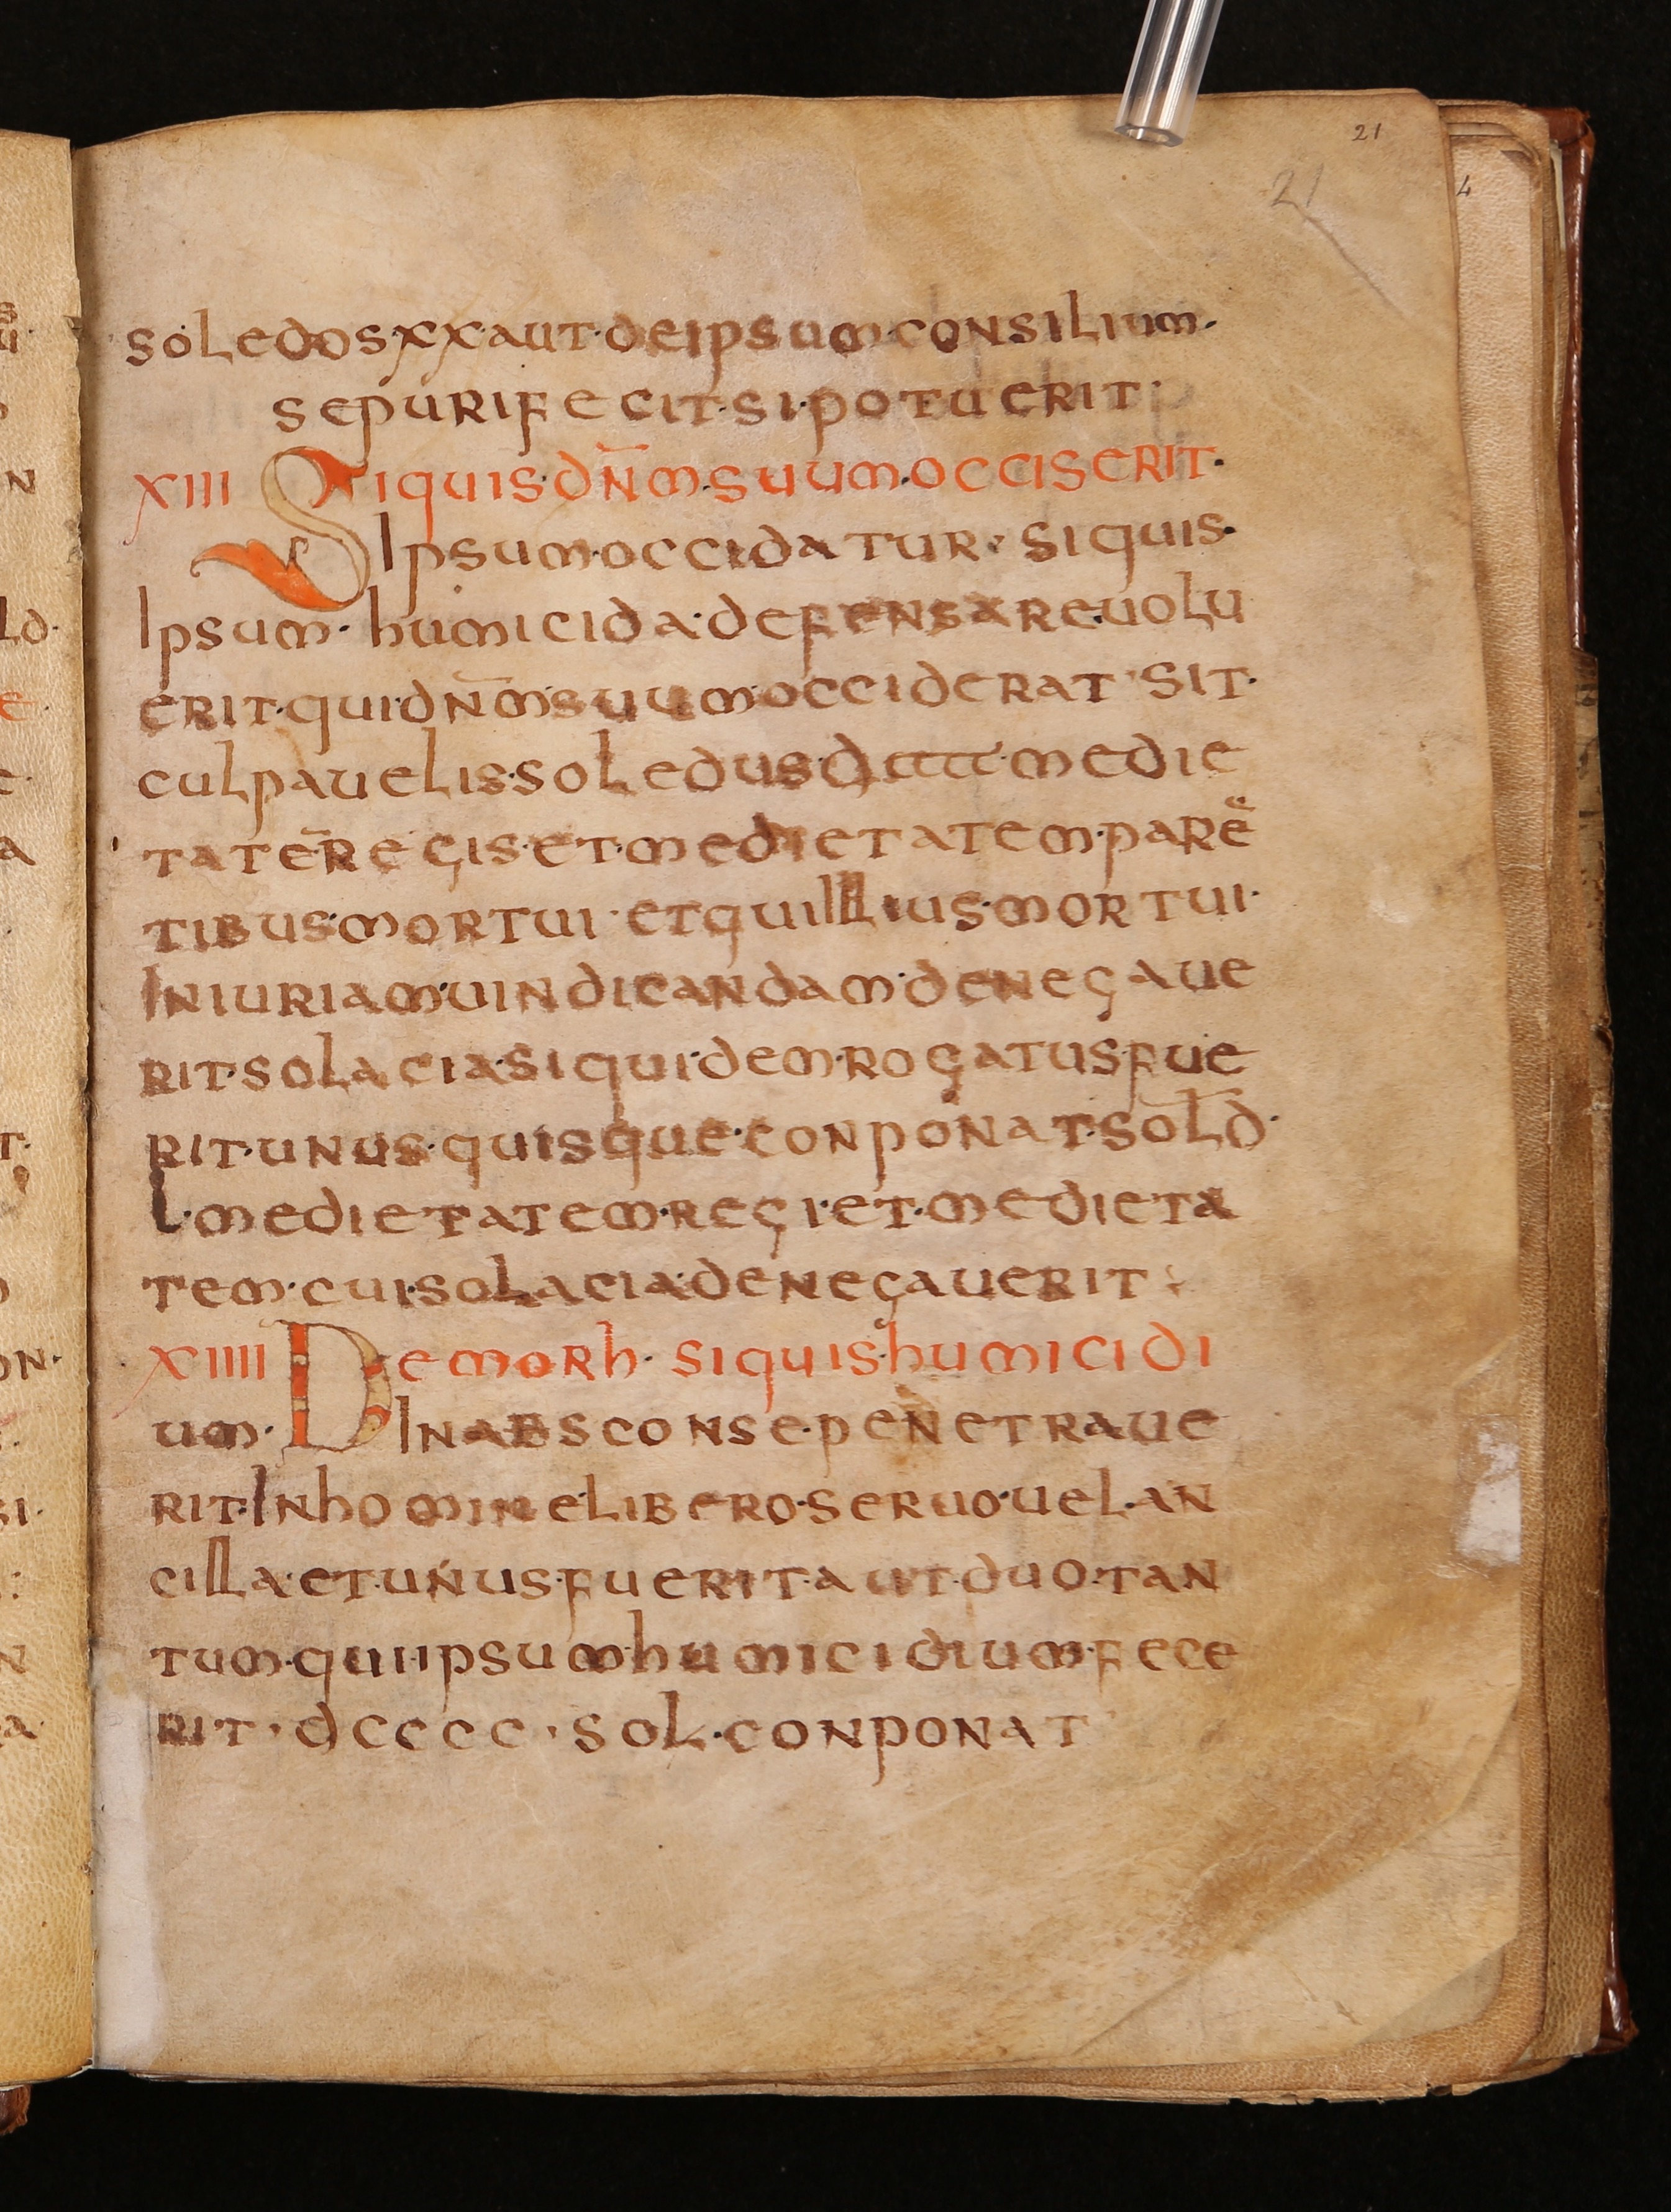 21
21
4
soledos·xx aut·de ipsum·consilium·
se purifecit·si·potuerit·
XIII Siquis·dn̄m·suum·occiserit·
Ipsum·occidatur· siquis·
Ipsum· humicida·defensare·uolu
erit·qui·dn̄m·suum·occiderat· sit·
culpauelis·soledus·dcccc·medie
tatē·regis·et·medietatem·paren
tibus·mortui· et qui illius·mortui·
Iniuriam·uindicandam·denegaue
rit·solacia·si quidem·rogatus·fue
rit·unus·quisque·conponat·sol̄d·
L·medietatem·regi·et·medieta
tem·cui·solacia·denegauerit:
XIIII De morh· siquis·humicidi
um· In absconse·penetraue
rit·In homine libero·seruo·uel·an
cilla·et·unus·fuerit·aut·duo·tan
tum·qui ipsum·humicidium·fece
rit·dcccc·sol·conponat